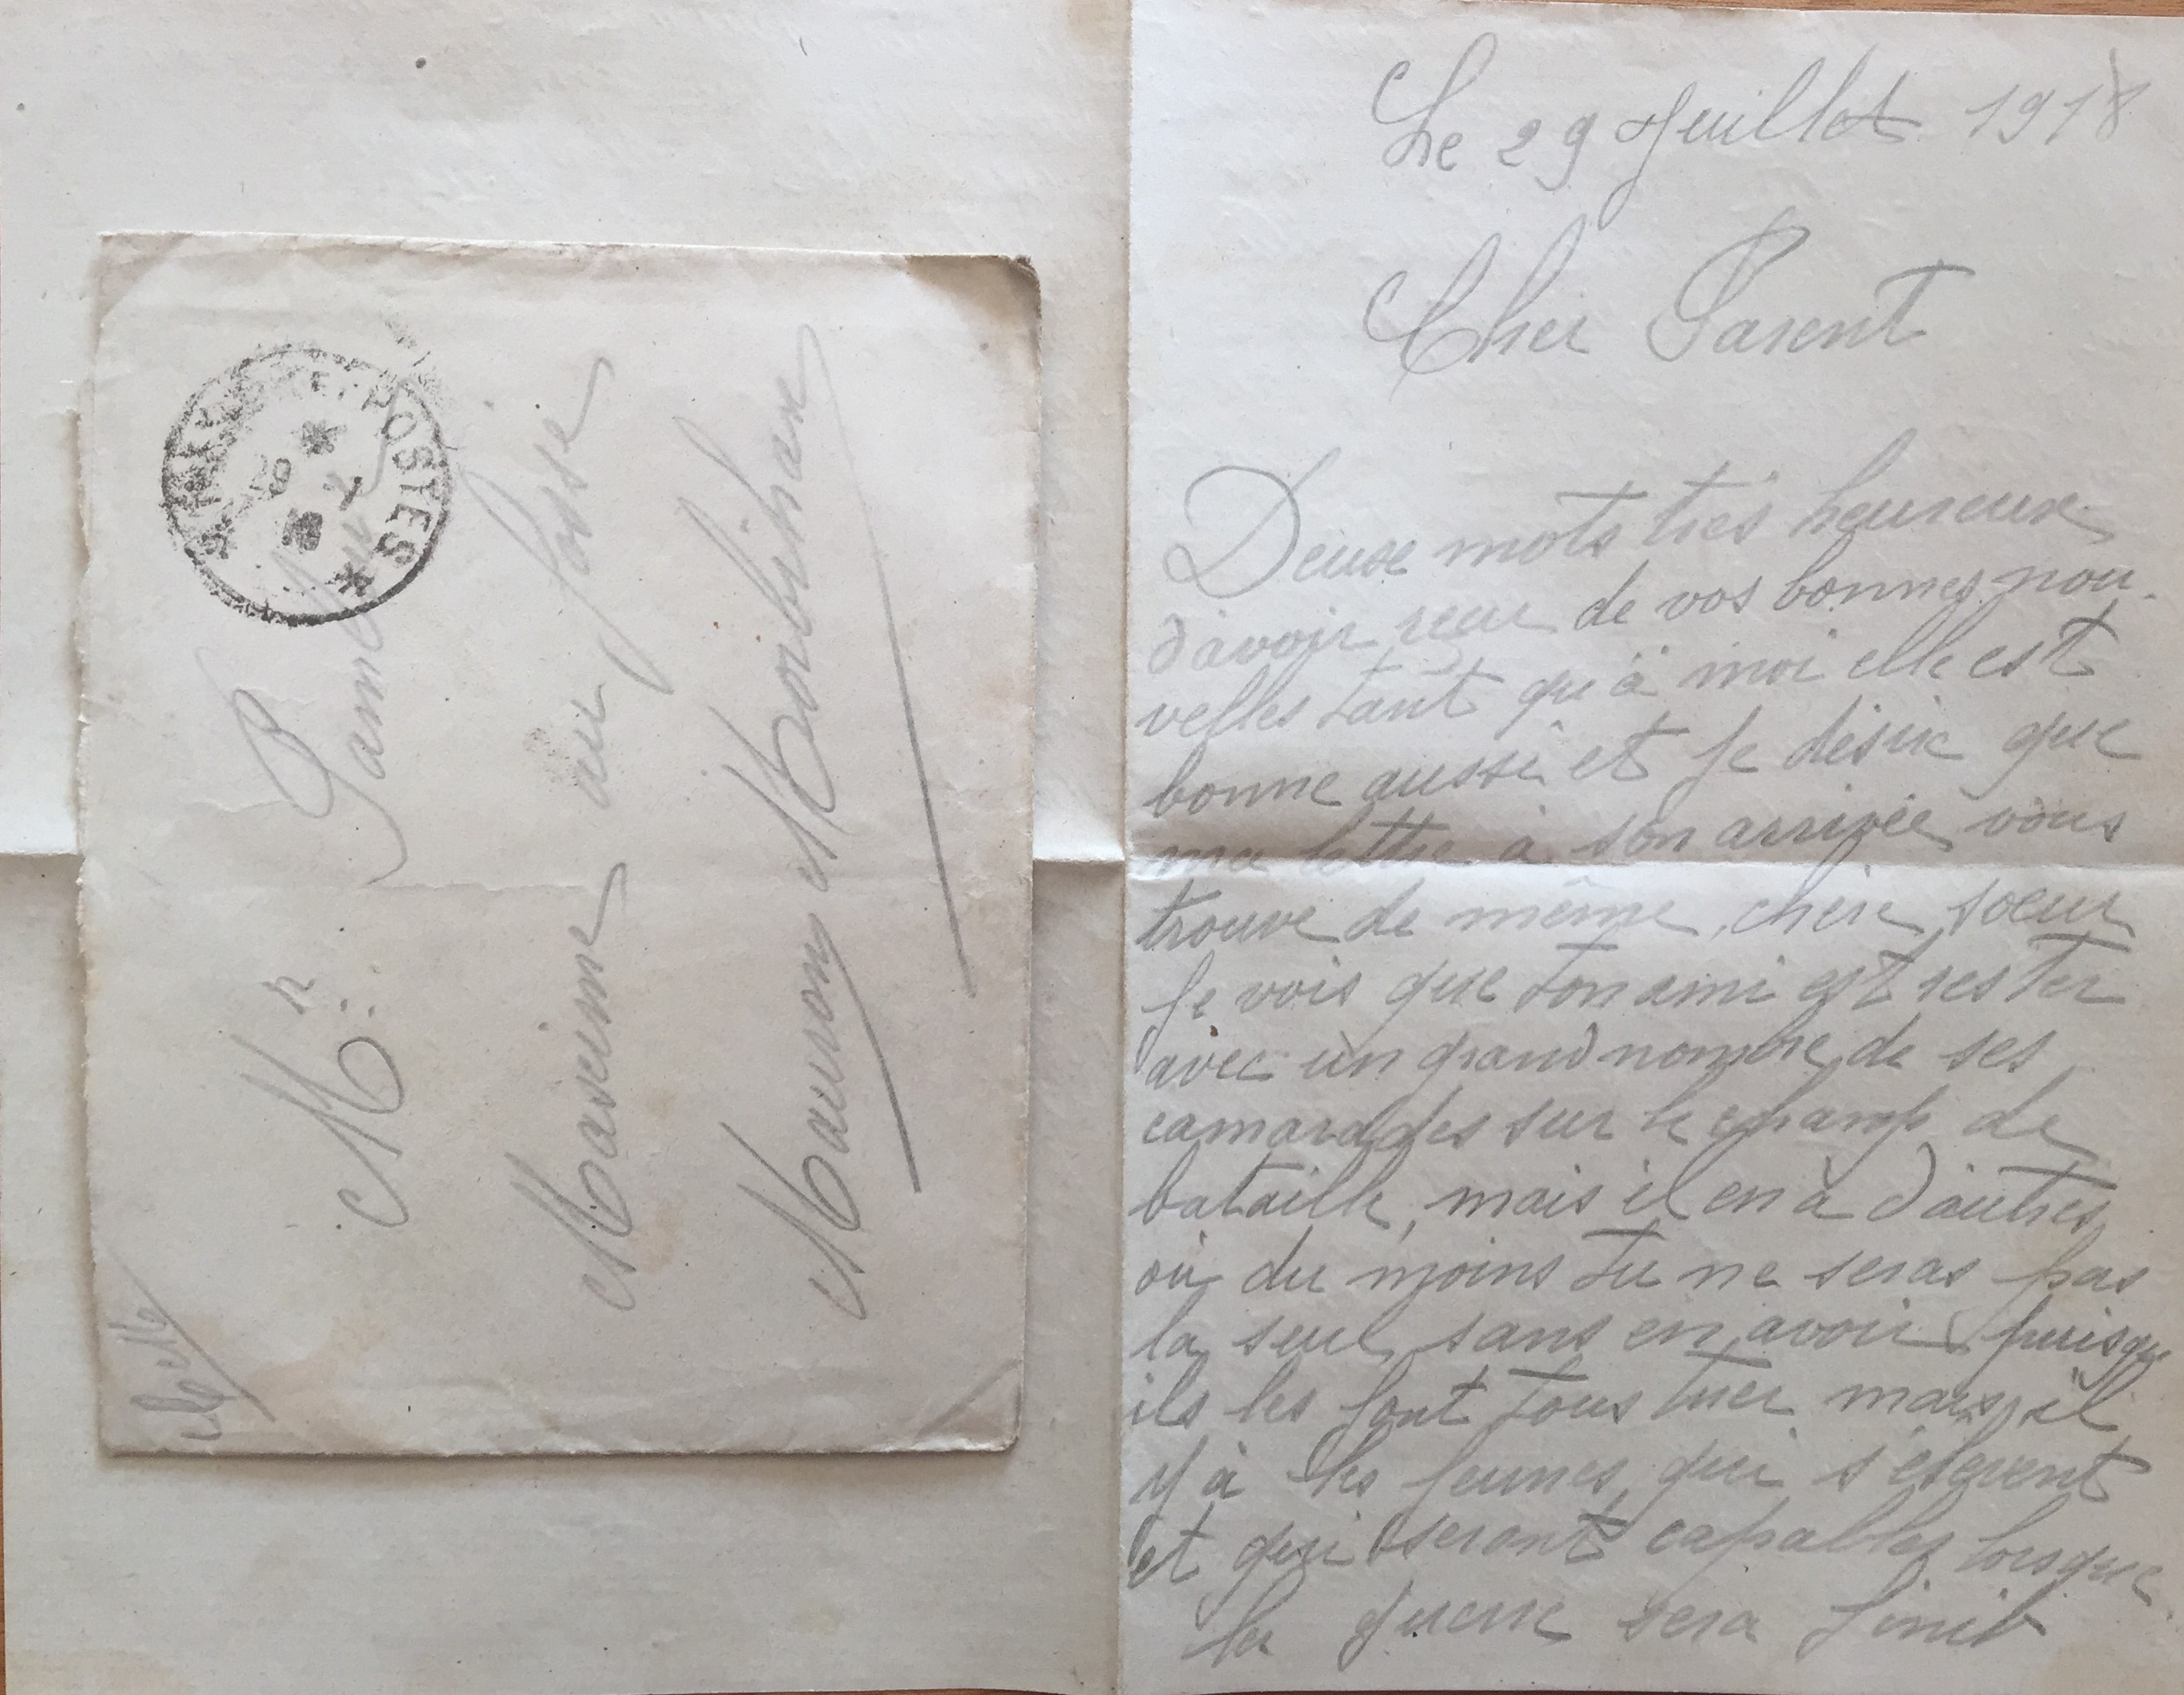 Mr. Pambu
Maxime au fosse
Mauron Morbihan
POSTES
29
7
18
Le 29 Juillet 1918
Cher Parent
Deux mots très heureux
d'avoir reçu de vos bonnes nou-
velles tant qu'à moi elle est
bonne aussi et je désire que
ma lettre à son arrivée vous
trouve de même, chère soeur
Je vois que ton ami est rester
avec un grand nombre de ses
camarades sur le champ de
bataille, mais il en à d'autres
où du moins tu ne seras pas
la seul sans en avoir puisqu
ils les font tous tuer mais il
y à les jeunes qui s'élevent
et qui seront capables lorsque
la guerre sera finit